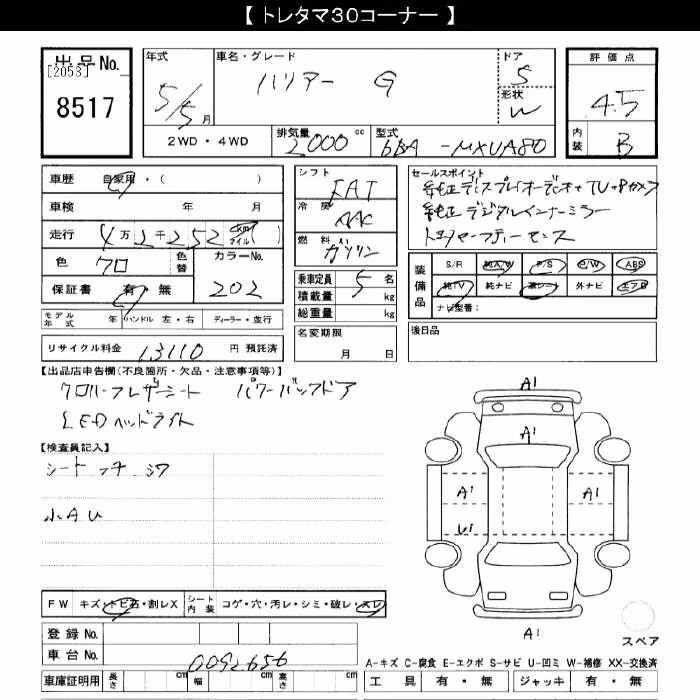 【 トレタマ30コーナー 】
出品No.
[2053]
8517
年式
5/5月
車名・グレード
ハリアー G
ドア
5
形状
W
2WD・4WD
排気量 2000 cc
型式 6BA-MXUA80
評価点
4.5
内装 B
車歴 自家用・( )
車検 年 月
走行 4万2千252 km マイル ( )
色 クロ 色替
カラーNo. 202
保証書 有・無
モデル年式 年 ハンドル 左・右 ディーラー・並行
リサイクル料金 13110 円 預託済
シフト FAT
冷房 AAC
燃料 ガソリン
乗車定員 5 名
積載量 kg
総重量 kg
名変期限
月 日
セールスポイント
純正ディスプレイオーディオ+TV+Bカメラ
純正デジタルインナーミラー
トヨタセーフティーセンス
装備品
S/R 純A/W P/S P/W ABS
純TV 純ナビ 革シート 外ナビ エアB
ナビ型番:
後日品
【出品店申告欄(不良箇所・欠品・注意事項等)】
クロハーフレザーシート パワーバックドア
LEDヘッドライト
【検査員記入】
シート シワ
小AU
A1
A1
A1 A1
U1
A1
スペア
FW キズ・トビ石・割レX シート内装 コゲ・穴・汚レ・シミ・破レ・スレ
登録No.
車台No. 0092656
車庫証明用 長さ cm 幅 cm 高さ cm
A-キズ C-腐食 E-エクボ S-サビ U-凹ミ W-補修 XX-交換済
工具 有・無 ジャッキ 有・無